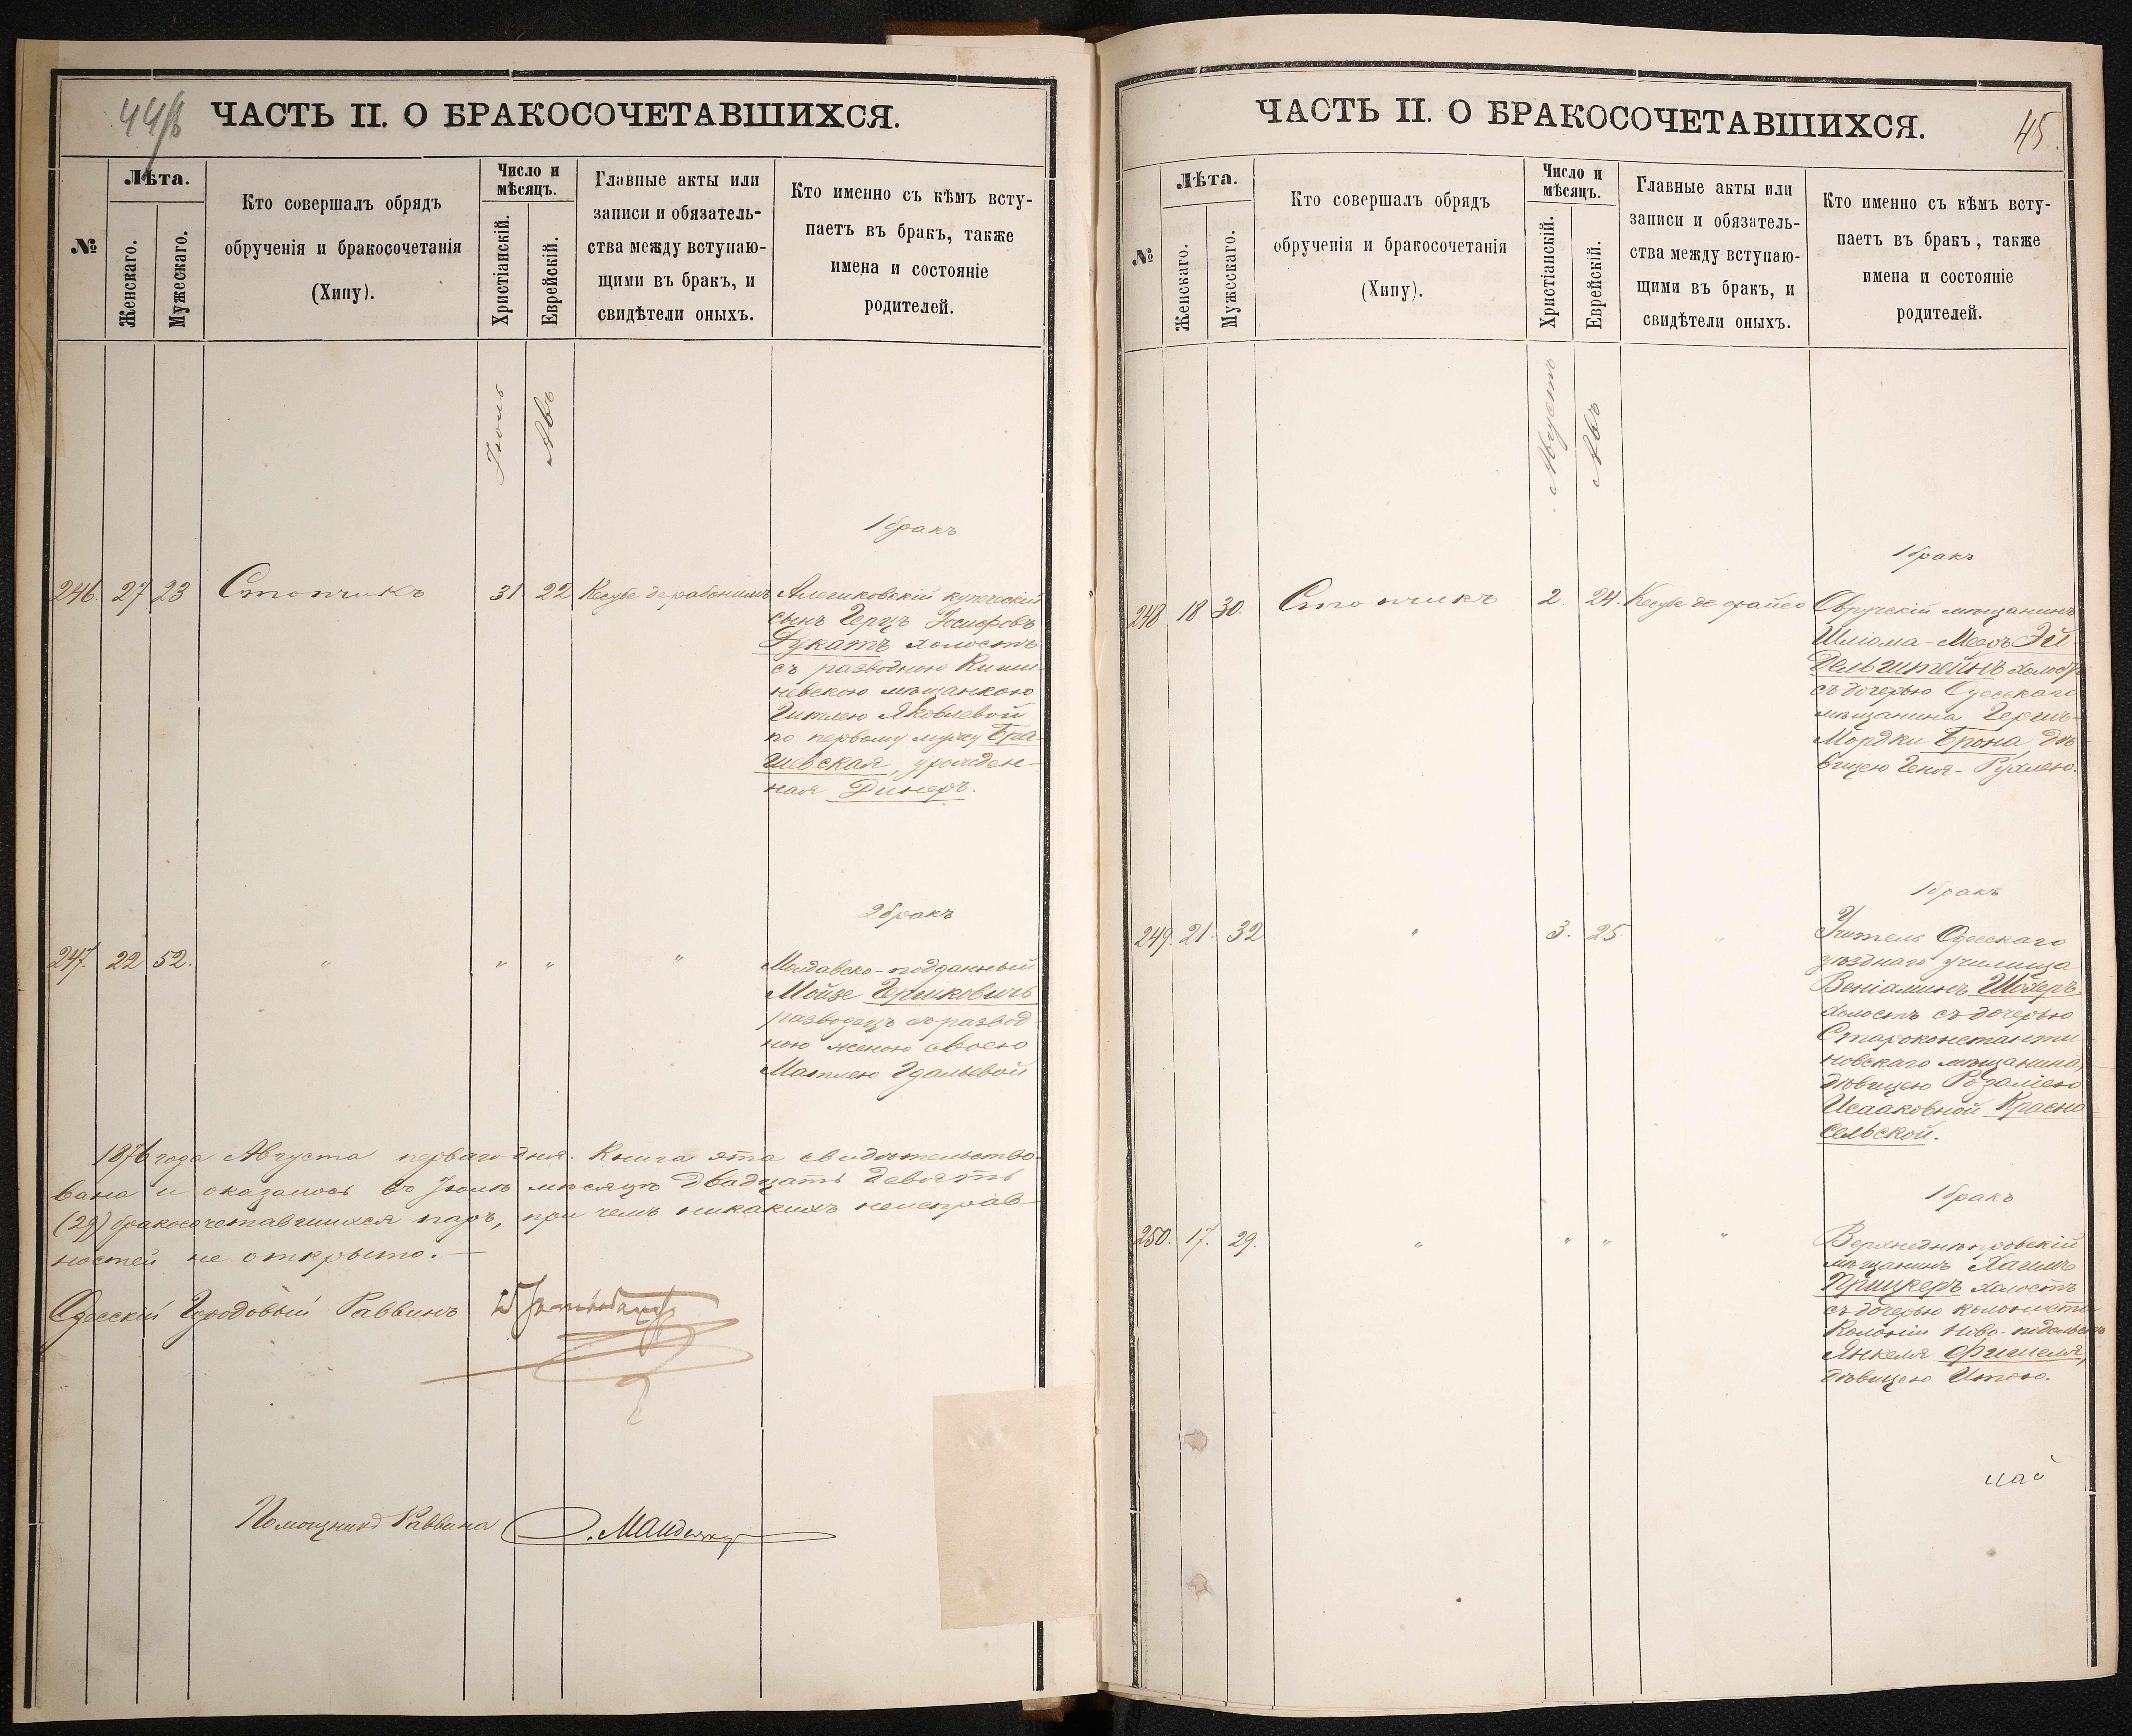 44/b
ЧАСТЬ II. О БРАКОСОЧЕТАВШИХСЯ.
№
Лѣта.
Женскаго.
Мужескаго.
Кто совершалъ обрядъ
обрученія и бракосочетанія
(Хипу).
Число и
мѣсяцъ.
Христіанскій.
Еврейскій.
Главные акты или
записи и обязатель-
ства между вступаю-
щими въ бракъ, и
свидѣтели оныхъ.
Кто именно съ кѣмъ всту-
паетъ въ бракъ, также
имена и состояніе
родителей.
Іюль
Авъ
1 бракъ
246. 27 23 Стопчикъ 31 22 Кесубе дерабонимъ
Алешковскій купеческій
сынъ Герцъ Іосифовъ
Дукатъ холостъ
съ разводною Киши-
невскою мѣщанкою
Гитлею Яковлевой
по первому мужу Бра-
шевская, урожден-
ная Динеръ.
2 бракъ
247. 22 52. " " " "
Молдавско-подданный
Мойзе Гершковичъ
разводецъ съ развод-
ною женою своею
Матлею Гдальевой
1876 года Августа перваго дня. Книга эта свидѣтельство-
вана и оказалось въ Іюлѣ мѣсяцѣ двадцать девять
(29) бракосочетавшихся паръ, при чемъ никакихъ неисправ-
ностей не открыто.—
Одесскій Городовый Раввинъ
Помощникъ Раввина
45.
ЧАСТЬ II. О БРАКОСОЧЕТАВШИХСЯ.
№
Лѣта.
Женскаго.
Мужескаго.
Кто совершалъ обрядъ
обрученія и бракосочетанія
(Хипу).
Число и
мѣсяцъ.
Христіанскій.
Еврейскій.
Главные акты или
записи и обязатель-
ства между вступаю-
щими въ бракъ, и
свидѣтели оныхъ.
Кто именно съ кѣмъ всту-
паетъ въ бракъ, также
имена и состояніе
родителей.
Августъ
Авъ
1 бракъ
248 18 30. Стопчикъ 2. 24. Кесубе де
Овручскій мѣщанинъ
Шліома-Мееръ Эй-
дельштейнъ холостъ
съ дочерью Одесскаго
мѣщанина Гершъ-
Мордки Брона, дѣ-
вицею Геня-Рухлею.
1 бракъ
249. 21. 32 " 3. 25. "
Учитель Одесскаго
уѣзднаго училища
Веніаминъ Шохеръ
холостъ съ дочерью
Староконстанти-
новскаго мѣщанина,
дѣвицею Розаліею
Исааковной Красно-
сельской.
1 бракъ
250. 17. 29. " " " "
Верхнеднѣпровскій
мѣщанинъ Хаимъ
Прицкеръ холостъ
съ дочерью колониста
Колоніи Ново-подольскъ
Янкеля Фишеля,
дѣвицею Итою.